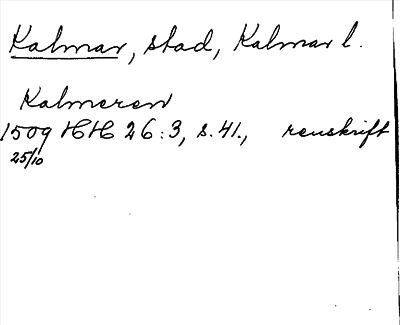 Kalmar, stad, Kalmar l.
Kalmeren
1509 HH 26:3, s. 41., renskrift
25/10